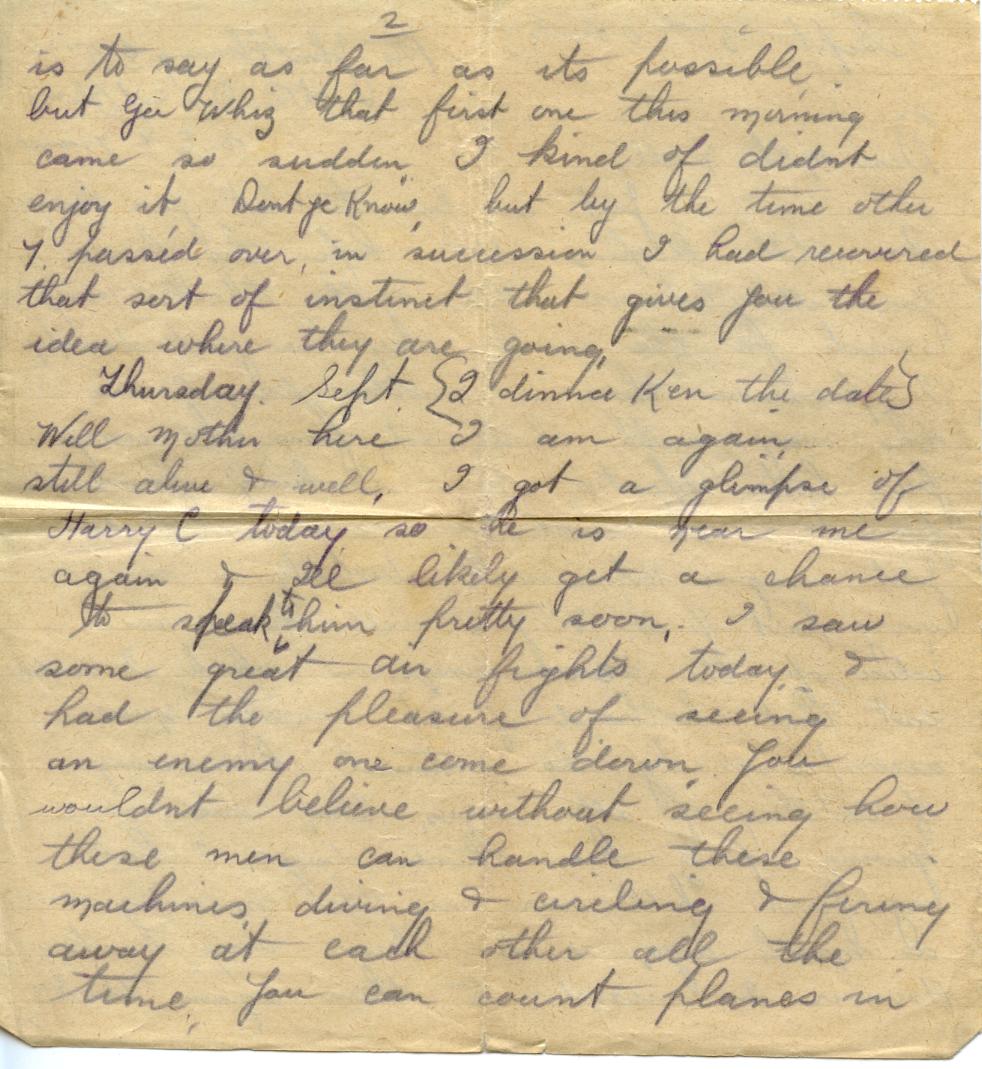 2
is to say as far as its possible.
but Gee Whiz that first one this morning
came so sudden I kind of didnt
enjoy it Dont ye Know, but by the time other
7 passed over, in succession I had recovered
that sort of instinct that gives you the
idea where they are going,
Thursday. Sept. {I dinna Ken the date}
Well Mother here I am again
still alive & well, I got a glimpse of
Harry C today so he is near me
again & Ill likely get a chance
to speak to him pretty soon, I saw
some great air fights today &
had the pleasure of seeing
an enemy one come down You
wouldnt believe without seeing how
these men can handle these
machines, diving & circling & firing
away at each other all the
time, You can count planes in